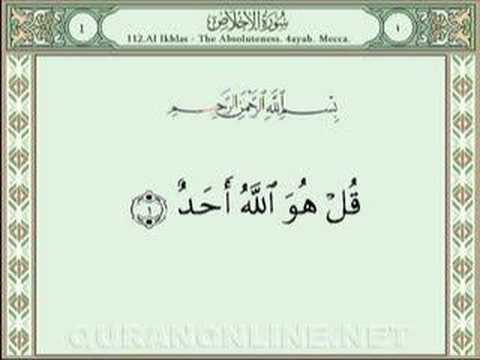 1 سُورَةُ الإِخْلَاصِ ١
112.Al Ikhlas - The Absoluteness. 4ayah. Mecca.
بِسْمِ اللَّهِ الرَّحْمَٰنِ الرَّحِيمِ
قُلْ هُوَ ٱللَّهُ أَحَدٌ ١
QURANONLINE.NET